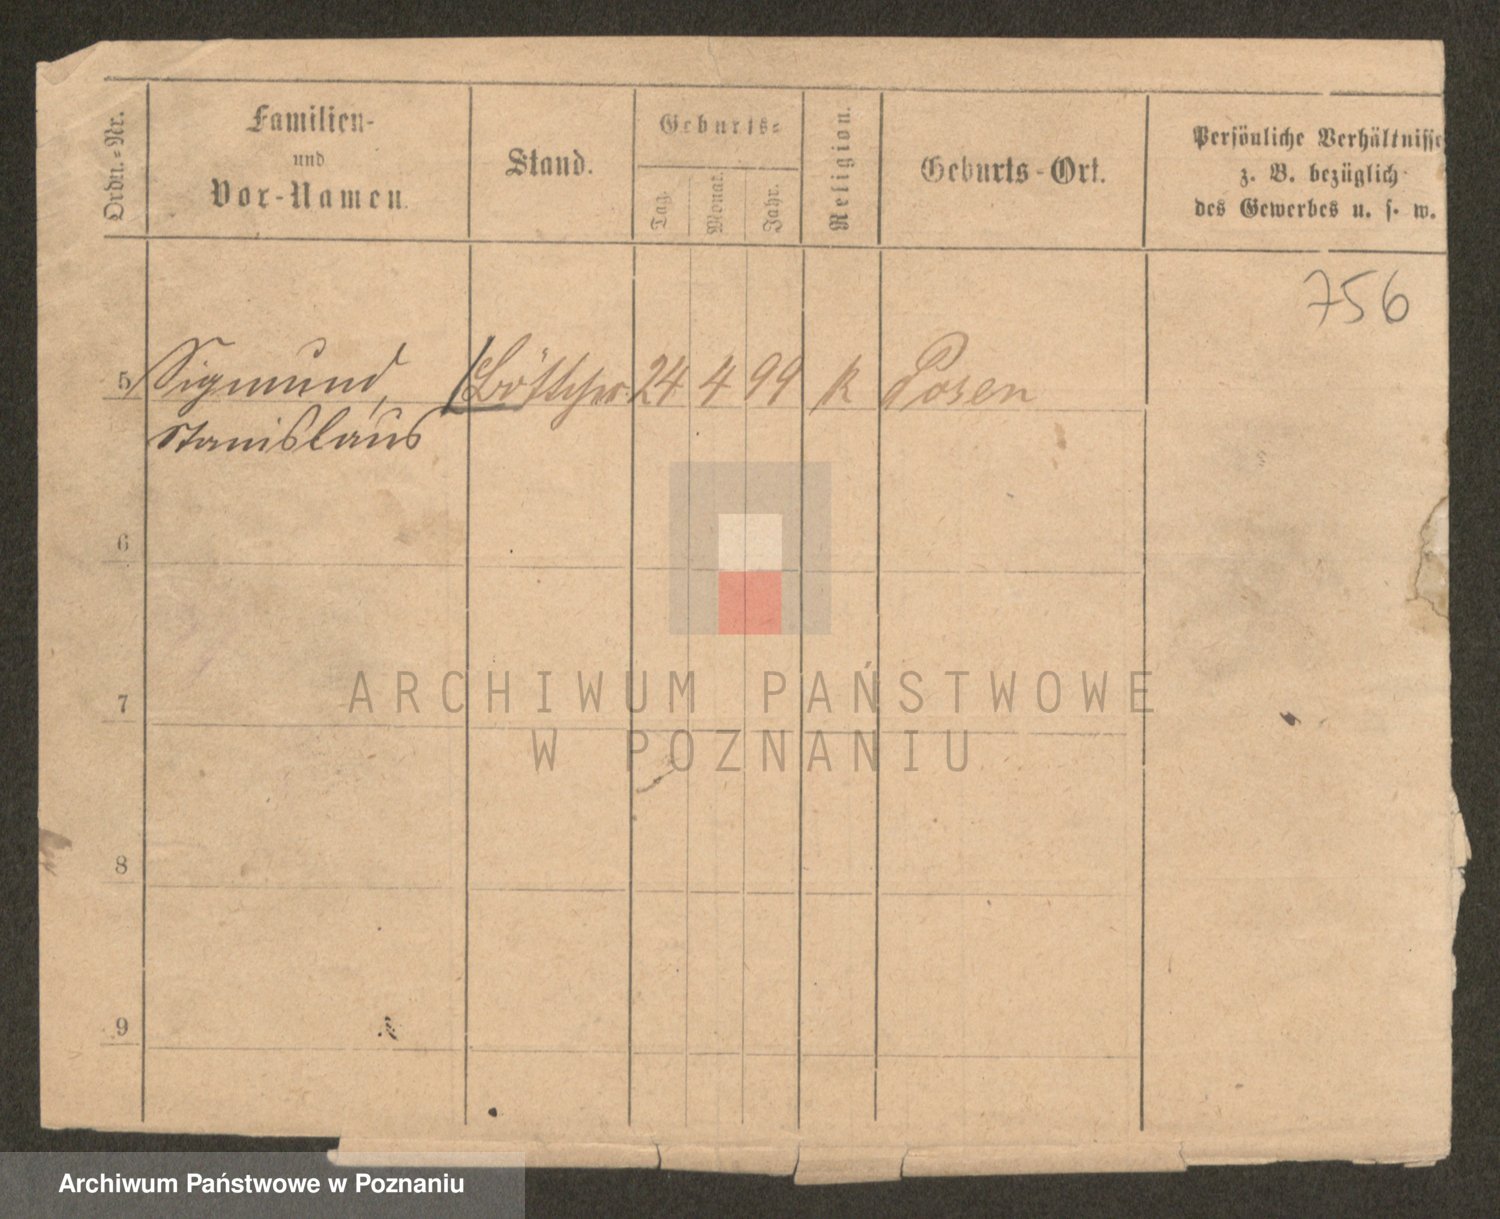 Ordn.-Nr.
Familien-
und
Vor-Namen.
Stand.
Geburts-
Tag.
Monat.
Jahr.
Religion.
Geburts-Ort.
Persönliche Verhältnisse
z. B. bezüglich
des Gewerbes u. s. w.
756
5 Sigmund, Böttcher 24 4 99 k Posen
Stanislaus
6
7
8
9
ARCHIWUM PAŃSTWOWE
W POZNANIU
Archiwum Państwowe w Poznaniu